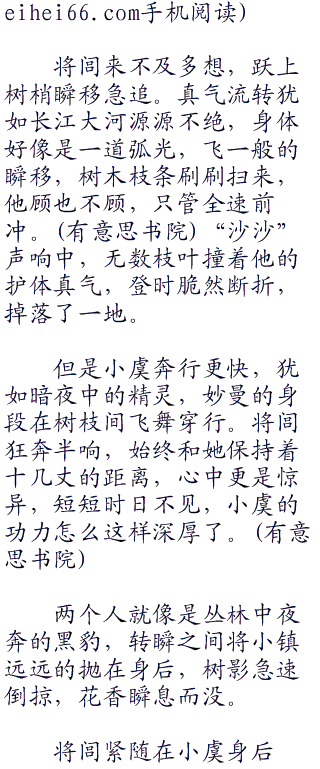 eihei66.com手机阅读)
将闾来不及多想，跃上
树梢瞬移急追。真气流转犹
如长江大河源源不绝，身体
好像是一道弧光，飞一般的
瞬移，树木枝条刷刷扫来，
他顾也不顾，只管全速前
冲。(有意思书院)“沙沙”
声响中，无数枝叶撞着他的
护体真气，登时脆然断折，
掉落了一地。
但是小虞奔行更快，犹
如暗夜中的精灵，妙曼的身
段在树枝间飞舞穿行。将闾
狂奔半响，始终和她保持着
十几丈的距离，心中更是惊
异，短短时日不见，小虞的
功力怎么这样深厚了。(有意
思书院)
两个人就像是丛林中夜
奔的黑豹，转瞬之间将小镇
远远的抛在身后，树影急速
倒掠，花香瞬息而没。
将闾紧随在小虞身后